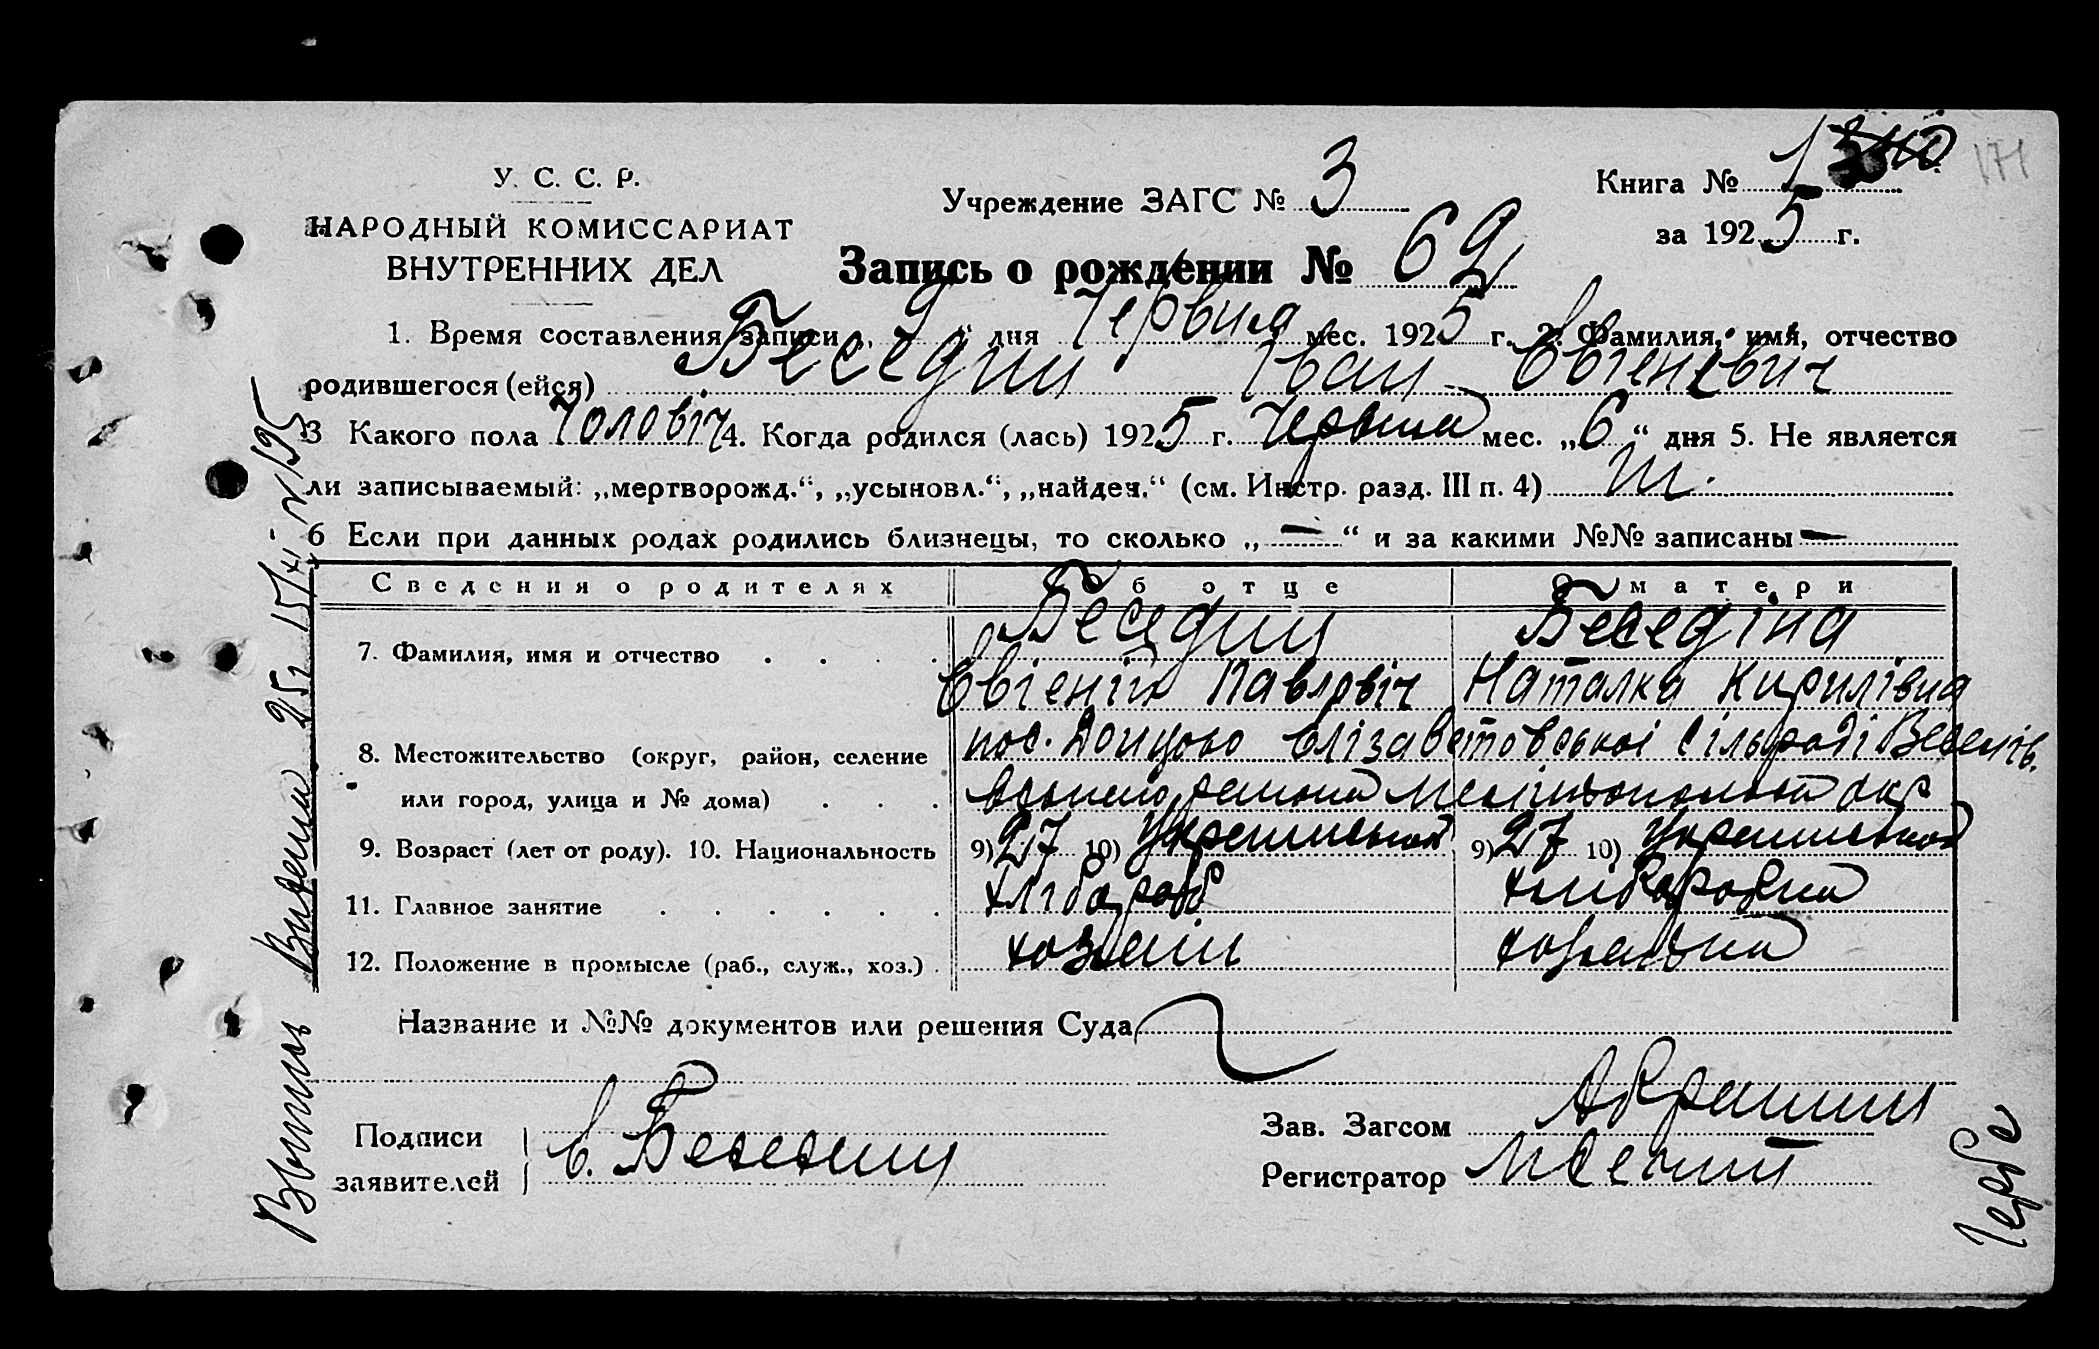 У. С. С. Р.
НАРОДНЫЙ КОМИССАРИАТ
ВНУТРЕННИХ ДЕЛ
Учреждение ЗАГС № 3
Книга № 1
171
за 1925 г.
Запись о рождении № 69
1. Время составления записи „9“ дня Червня мес. 1925 г. 2. Фамилия, имя, отчество
родившегося (ейся) Беседин Іван Євгеневич
3 Какого пола Чоловіч 4. Когда родился (лась) 1925 г. Червня мес. „6“ дня 5. Не является
ли записываемый: „мертворожд.“, „усыновл.“, „найден.“ (см. Инстр. разд. III п. 4)
6 Если при данных родах родились близнецы, то сколько „—“ и за какими №№ записаны —
Сведения о родителях Об отце О матери
7. Фамилия, имя и отчество . . . .
Беседин
Євгеній Павловіч
Беседіна
Наталка Кирилівна
8. Местожительство (округ, район, селение
или город, улица и № дома) . . .
пос. Донцово Єлізаветовської Сільраді Веселів.
району Мелітопольськ окр
9. Возраст (лет от роду). 10. Национальность 9) 27 10) Українськой 9) 27 10) Українськой
11. Главное занятие . . . . . . хлібороб хліборобка
12. Положение в промысле (раб., служ., хоз.) . хозяїн хозяйка
Название и №№ документов или решения Суда
Подписи
заявителей
Є. Беседин
Зав. Загсом
Регистратор